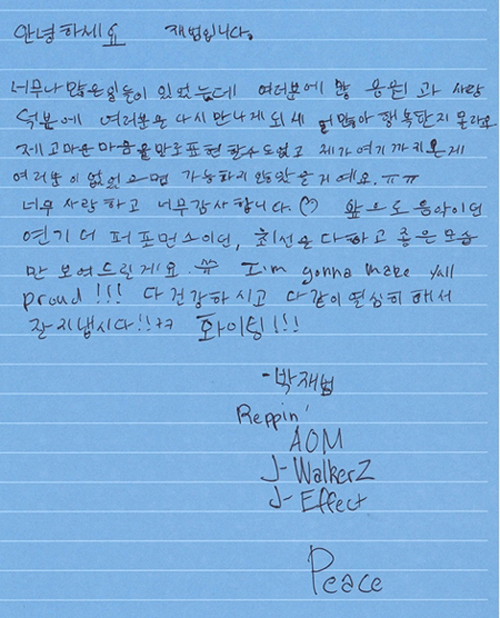 안녕하세요 재범입니다.
너무나 많은 일들이 있었는데 여러분에 많 응원과 사랑
덕분에 여러분을 다시 만나게 되서 얼만아 행복한지 몰라요
제 고마운 마음을 말로 표현 할수도 없고 제가 여기까지 온게
여러분이 없었으면 가능하지 않았을거예요. ㅠㅠ
너무 사랑하고 너무 감사합니다. ♡ 앞으로 음악이던
연기던 퍼포먼스이던, 최선을 다하고 좋은 모습
만 보여드릴게요. ^^ I'm gonna make yall
proud!!! 다 건강하시고 다같이 열심히 해서
잘 지냅시다!! ㅋㅋ 화이팅!!!
-박재범
Reppin'
AOM
J-WalkerZ
J-Effect
Peace